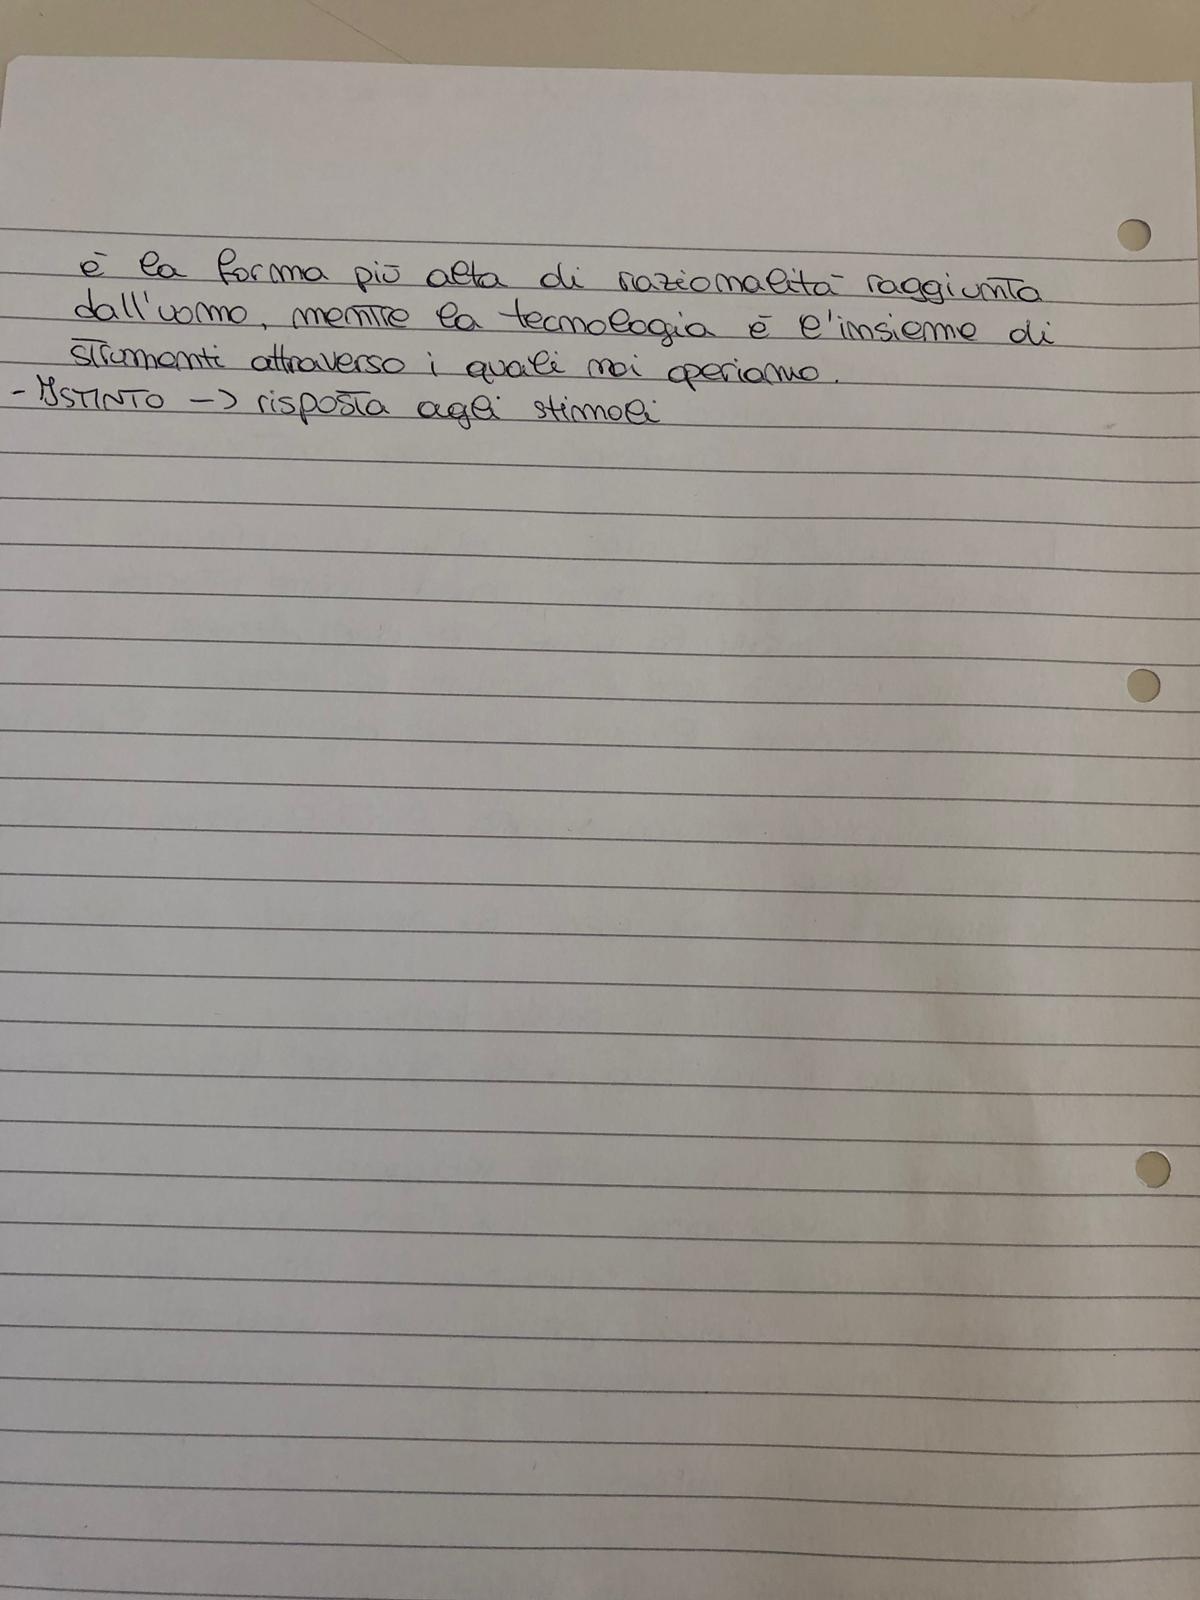 è la forma più alta di razionalità raggiunta
dall'uomo, mentre la tecnologia è l'insieme di
strumenti attraverso i quali noi operiamo.
- ISTINTO -> risposta agli stimoli